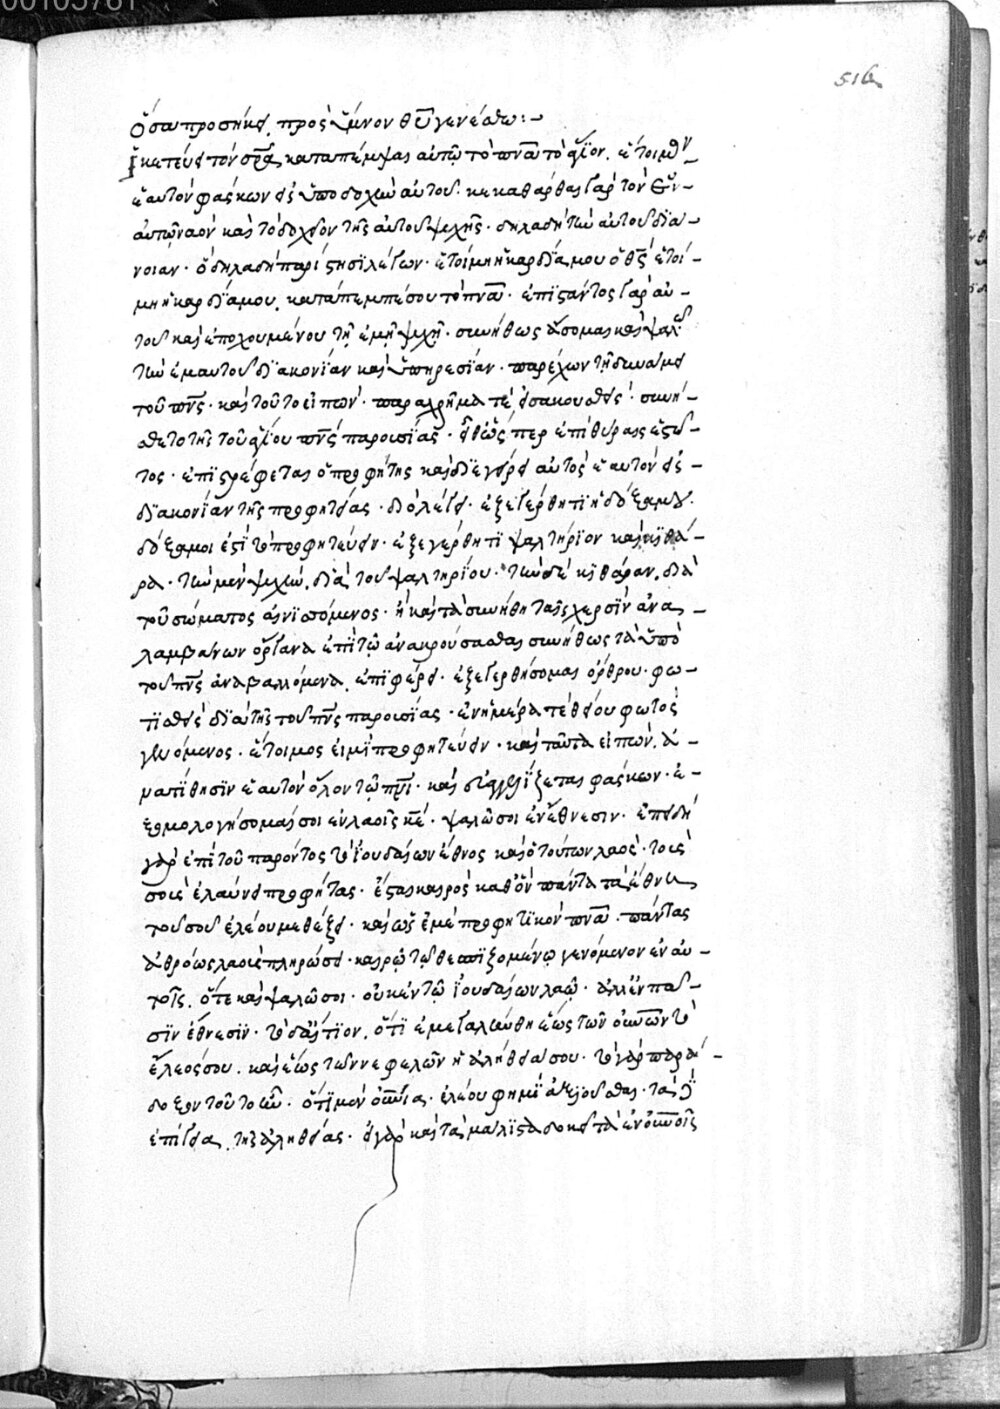 00105781
516
ὅσα προσήκει πρὸς ὕμνον θῦ γενέσθω:~
ἱκετεύει τὸν σρα καταπέμψαι αὐτῷ τὸ πνα τὸ ἅγιον. ἕτοιμον
ἑαυτὸν φάσκων εἰς ὑποδοχὴν αὐτοῦ. κεκαθάρθαι γὰρ τὸν
αὐτῷ ναὸν καὶ τὸ δοχεῖον τῆς αὐτοῦ ψυχῆς. δηλαδὴ τὴν αὐτοῦ διά-
νοιαν. ὃ δηλαδὴ παρίστησι λέγων. ἑτοίμη ἡ καρδία μου ὁ θς ἑτοί-
μη ἡ καρδία μου. κατάπεμπέ σου τὸ πνα. ἐπιστάντος γὰρ αὐ-
τοῦ καὶ ἐποχουμένου τῇ ἐμῇ ψυχῇ. συνήθως ᾄσομαι καὶ ψαλῶ
τὴν ἐμαυτοῦ διακονίαν καὶ ὑπηρεσίαν. παρέχων τῇ δυνάμει
τοῦ πνς. καὶ τοῦτο εἰπὼν. παραχρῆμά τε εἰσακουσθεὶς. συνῄ-
σθετο τῆς τοῦ ἁγίου πνς παρουσίας. εἶθ ὥσπερ ἐπὶ θύραις ἑστῶ-
τος. ἐπιστρέφεται ὁ προφήτης καὶ διεγείρει αὐτὸς ἑαυτὸν εἰς
διακονίαν τῆς προφητείας. διὸ λέγει. ἐξεγέρθητι ἡ δόξα μου.
δόξα μοι ἐστὶ τὸ προφητεύειν. ἐξεγέρθητι ψαλτήριον καὶ κιθά-
ρα. τὴν μὲν ψυχὴν, διὰ τοῦ ψαλτηρίου. τὴν δὲ κιθάραν, διὰ
τοῦ σώματος αἰνιττόμενος. ἢ καὶ τὰ συνήθη ταῖς χερσὶν ἀνα-
λαμβάνων ὄργανα ἐπὶ τῷ ἀνακρούσασθαι συνήθως τὰ ὑπὸ
τοῦ πνς ἀναβαλλόμενα, ἐπιφέρει. ἐξεγερθήσομαι ὄρθρου. φω-
τισθεὶς διὰ τῆς τοῦ πνς παρουσίας. ἐν ἡμέρα τε θείου φωτὸς
γενόμενος. ἕτοιμος εἰμὶ προφητεύειν. καὶ ταῦτα εἰπὼν, ἀ-
νατίθησιν ἑαυτὸν ὅλον τῷ πνι. καὶ φάσκων. ἐ-
ξομολογήσομαί σοι ἐν λαοῖς κε. ψαλῶ σοι ἐν ἔθνεσιν. ἐπειδὴ
γὰρ ἐπὶ τοῦ παρόντος τὸ ἰουδαίων ἔθνος καὶ ὁ τούτων λαὸς. τοὺς
σοὺς ἐλαύνει προφήτας. ἔσται καιρὸς καθ᾽ ὃν πάντα τὰ ἔθνη
τοῦ σοῦ ἐλέου μεθέξει. καὶ ὡς ἐμὲ προφητικὸν πνα. πάντας
ἀθρόως λαοὺς πληρώσει. καιρῷ τῷ θεσπιζομένῳ γενόμενον ἐν αὐ-
τοῖς, ὅτε καὶ ψαλῶ σοι. οὐκ ἐν τῷ ἰουδαίων λαῷ. ἀλλ᾽ ἐν πᾶ-
σιν ἔθνεσιν. τὸ δ᾽ αἴτιον, ὅτι ἐμεγαλύνθη ἕως τῶν οὐνῶν τὸ
ἔλεός σου. καὶ ἕως τῶν νεφελῶν ἡ ἀλήθειά σου. τὸ γὰρ παρά-
δοξον τοῦτο ἦν. ὅτι μὲν οὐνια. ἐλέου φημὶ ἀξιοῦσθαι. τὰ δὲ
ἐπίγεια, τῆς ἀληθείας. εἰ γὰρ καὶ τὰ μάλιστα δοκεῖ τὰ ἐν οὐνοῖς